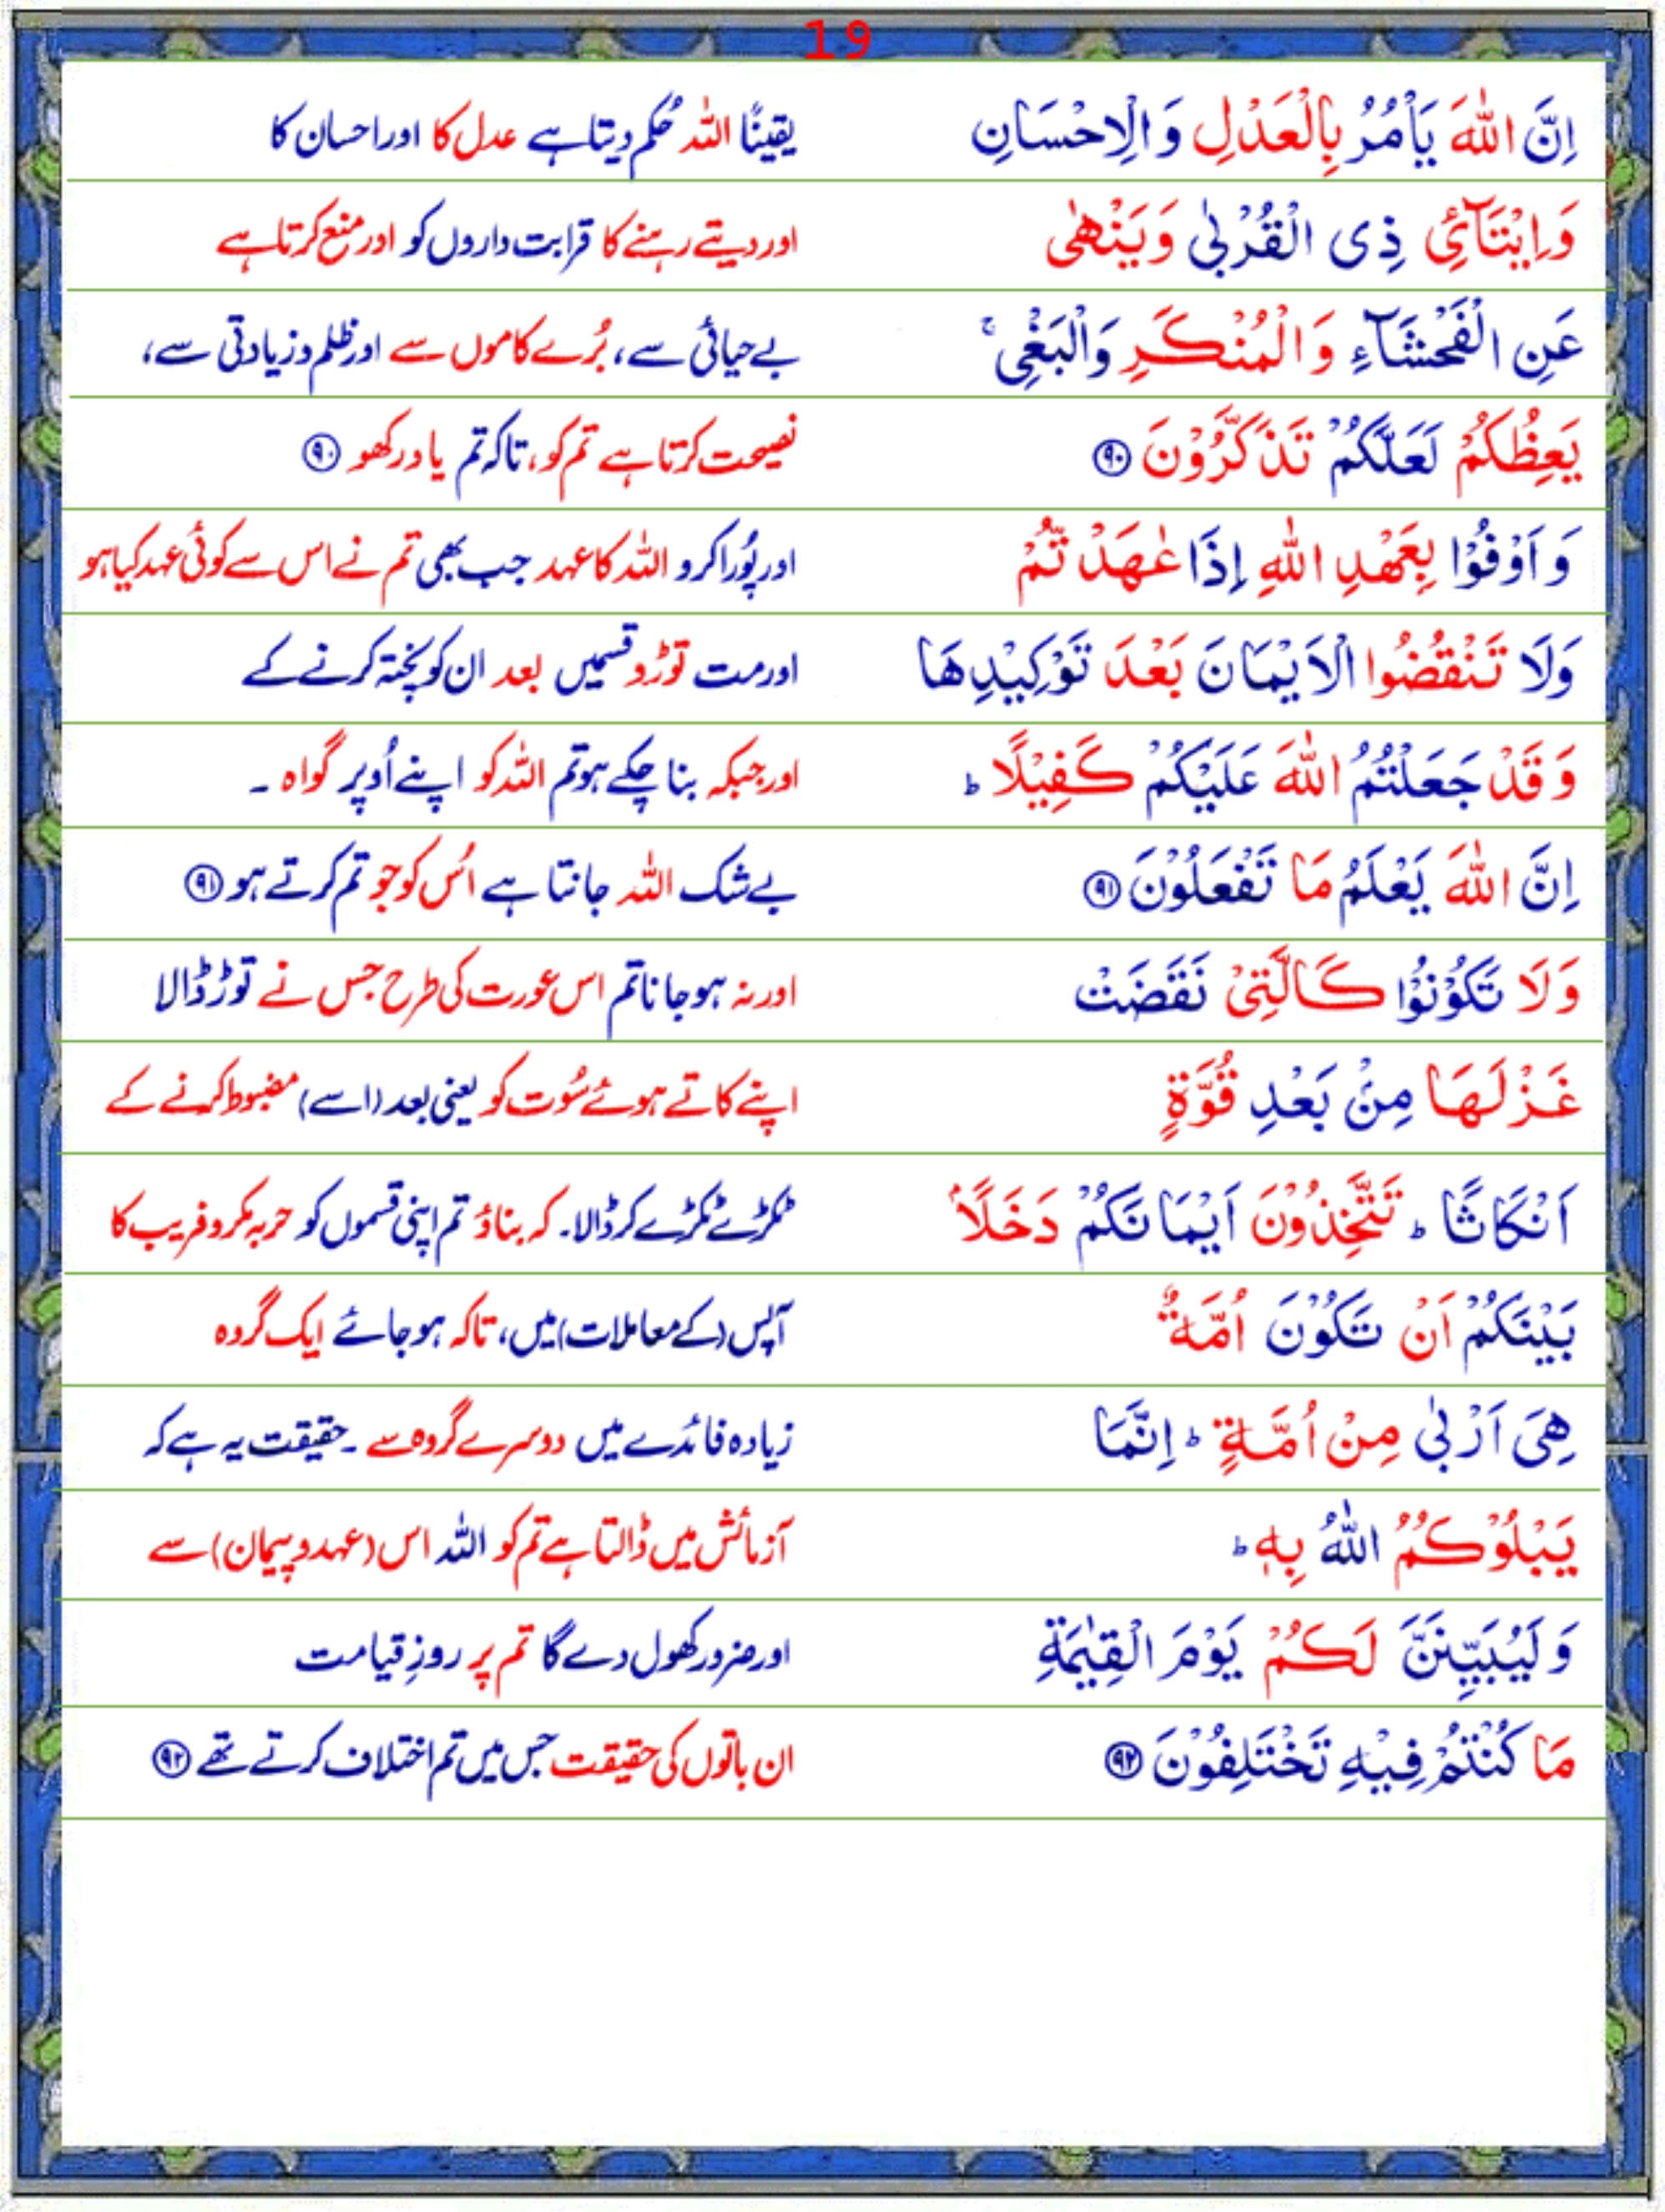 19
اِنَّ اللّٰهَ يَاْمُرُ بِالْعَدْلِ وَ الْاِحْسَانِ یقینًا اللہ حُکم دیتا ہے عدل کا اور احسان کا
وَ اِيْتَآئِ ذِى الْقُرْبٰى وَ يَنْهٰى اور دیتے رہنے کا قرابت داروں کو اور منع کرتا ہے
عَنِ الْفَحْشَآءِ وَ الْمُنْكَرِ وَ الْبَغْىِ ۚ بے حیائی سے، بُرے کاموں سے اور ظلم و زیادتی سے،
يَعِظُكُمْ لَعَلَّكُمْ تَذَكَّرُوْنَ ۹۰ نصیحت کرتا ہے تم کو، تاکہ تم یاد رکھو ۹۰
وَ اَوْفُوْا بِعَهْدِ اللّٰهِ اِذَا عٰهَدْ تُّمْ اور پُورا کرو اللہ کا عہد جب بھی تم نے اس سے کوئی عہد کیا ہو
وَلَا تَنْقُضُوا الْاَيْمَانَ بَعْدَ تَوْكِيْدِهَا اور مت توڑو قسمیں بعد ان کو پختہ کرنے کے
وَ قَدْ جَعَلْتُمُ اللّٰهَ عَلَيْكُمْ كَفِيْلًا ؕ اور جبکہ بنا چکے ہو تم اللہ کو اپنے اُوپر گواہ ۔
اِنَّ اللّٰهَ يَعْلَمُ مَا تَفْعَلُوْنَ ۹۱ بے شک اللہ جانتا ہے اُس کو جو تم کرتے ہو ۹۱
وَلَا تَكُوْنُوْا كَالَّتِىْ نَقَضَتْ اور نہ ہو جانا تم اس عورت کی طرح جس نے توڑ ڈالا
غَزْلَهَا مِنْۢ بَعْدِ قُوَّةٍ اپنے کاتے ہوئے سُوت کو یعنی بعد (اسے) مضبوط کرنے کے
اَنْكَاثًا ؕ تَتَّخِذُوْنَ اَيْمَانَكُمْ دَخَلًاۢ ٹکڑے ٹکڑے کر ڈالا۔ کہ بناؤ تم اپنی قسموں کو حربہ مکرو فریب کا
بَيْنَكُمْ اَنْ تَكُوْنَ اُمَّةٌ آپس (کے معاملات) میں، تاکہ ہو جائے ایک گروہ
هِىَ اَرْبٰى مِنْ اُمَّةٍ ؕ اِنَّمَا زیادہ فائدے میں دوسرے گروہ سے ۔ حقیقت یہ ہے کہ
يَبْلُوْكُمُ اللّٰهُ بِهٖ ؕ آزمائش میں ڈالتا ہے تم کو اللہ اس (عہد و پیمان) سے
وَ لَيُبَيِّنَنَّ لَكُمْ يَوْمَ الْقِيٰمَةِ اور ضرور کھول دے گا تم پر روزِ قیامت
مَا كُنْتُمْ فِيْهِ تَخْتَلِفُوْنَ ۹۲ ان باتوں کی حقیقت جس میں تم اختلاف کرتے تھے ۹۲